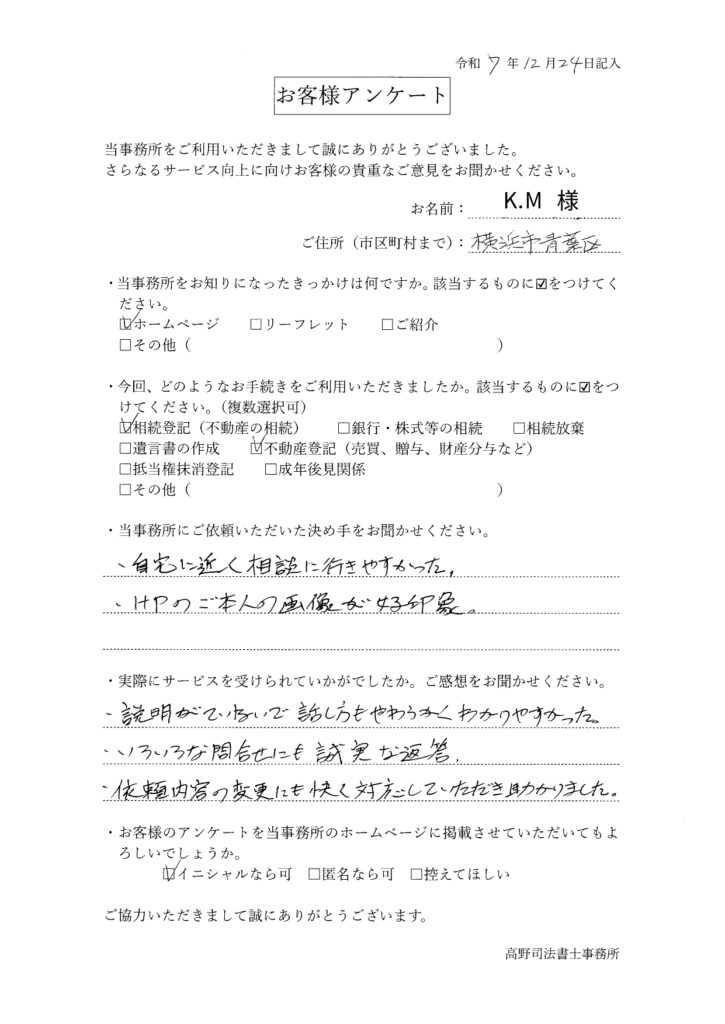 令和 7 年 12 月 24 日記入
お客様アンケート
当事務所をご利用いただきまして誠にありがとうございました。
さらなるサービス向上に向けお客様の貴重なご意見をお聞かせください。
お名前： K.M 様
ご住所（市区町村まで）： 横浜市青葉区
・当事務所をお知りになったきっかけは何ですか。該当するものに☑をつけてく
ださい。
☑ホームページ　□リーフレット　□ご紹介
□その他（　）
・今回、どのようなお手続きをご利用いただきましたか。該当するものに☑をつ
けてください。（複数選択可）
☑相続登記（不動産の相続）　□銀行・株式等の相続　□相続放棄
□遺言書の作成　☑不動産登記（売買、贈与、財産分与など）
□抵当権抹消登記　□成年後見関係
□その他（　）
・当事務所にご依頼いただいた決め手をお聞かせください。
・自宅に近く相談に行きやすかった。
・HPのご本人の画像が好印象。
・実際にサービスを受けられていかがでしたか。ご感想をお聞かせください。
・説明がていねいで話し方もやわらかくわかりやすかった。
・いろいろな問合せにも誠実な返答。
・依頼内容の変更にも快く対応していただき助かりました。
・お客様のアンケートを当事務所のホームページに掲載させていただいてもよ
ろしいでしょうか。
☑イニシャルなら可　□匿名なら可　□控えてほしい
ご協力いただきまして誠にありがとうございます。
高野司法書士事務所